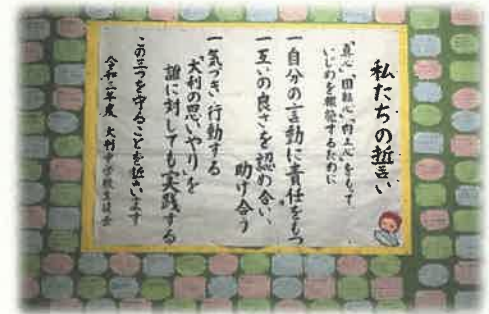 私たちの誓い
「真心」「団結心」「向上心」をもって、
いじめを根絶するために
一自分の言動に責任をもつ
一互いの良さを認め合い、
助け合う
一気づき・行動する
「大利の思いやり」を
誰に対しても実践する
この三つを守ることを誓います
令和二年度 大利中学校生徒会